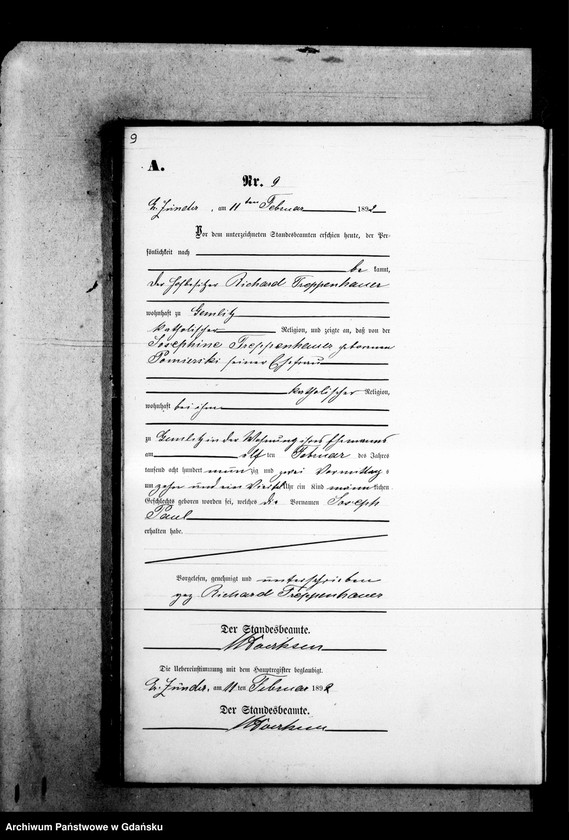 9
A.
Nr. 9
Gr. Zünder, am 11 ten Februar 1892
Vor dem unterzeichneten Standesbeamten erschien heute, der Per-
sönlichkeit nach
be kannt,
der Hofbesitzer Richard Treppenhauer
wohnhaft zu Gemlitz
katholischer Religion, und zeigte an, daß von der
Josephine Treppenhauer geborenen
Pomierski seiner Ehefrau
katholischer Religion,
wohnhaft bei ihm
zu Gemlitz in der Wohnung ihres Ehemanns
am elf ten Februar des Jahres
tausend acht hundert neun zig und zwei Vormittags
um zehn und ein Viertel Uhr ein Kind männ lichen
Geschlechts geboren worden sei, welches die Vornamen Joseph
Paul
erhalten habe.
Vorgelesen, genehmigt und unterschrieben
gez Richard Treppenhauer
Der Standesbeamte.
Die Uebereinstimmung mit dem Hauptregister beglaubigt.
Gr. Zünder, am 11 ten Februar 1892
Der Standesbeamte.
Archiwum Państwowe w Gdańsku